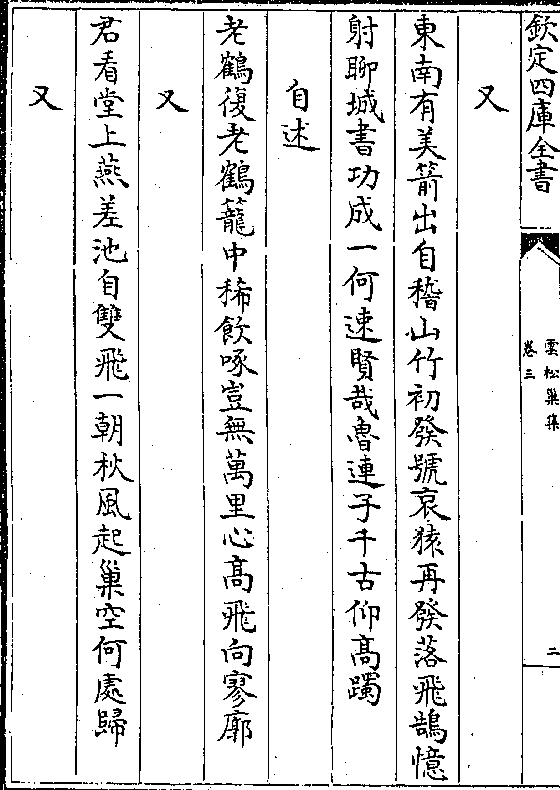 欽定四庫全書
雲松巢集
卷三
二
又
東南有美箭出自稽山竹初發號哀猿再發落飛鵠憶
射聊城書功成一何速賢哉魯連子千古仰高躅
自述
老鶴復老鶴籠中稀飲啄豈無萬里心高飛向寥廓
又
君看堂上燕差池自雙飛一朝秋風起巢空何處歸
又